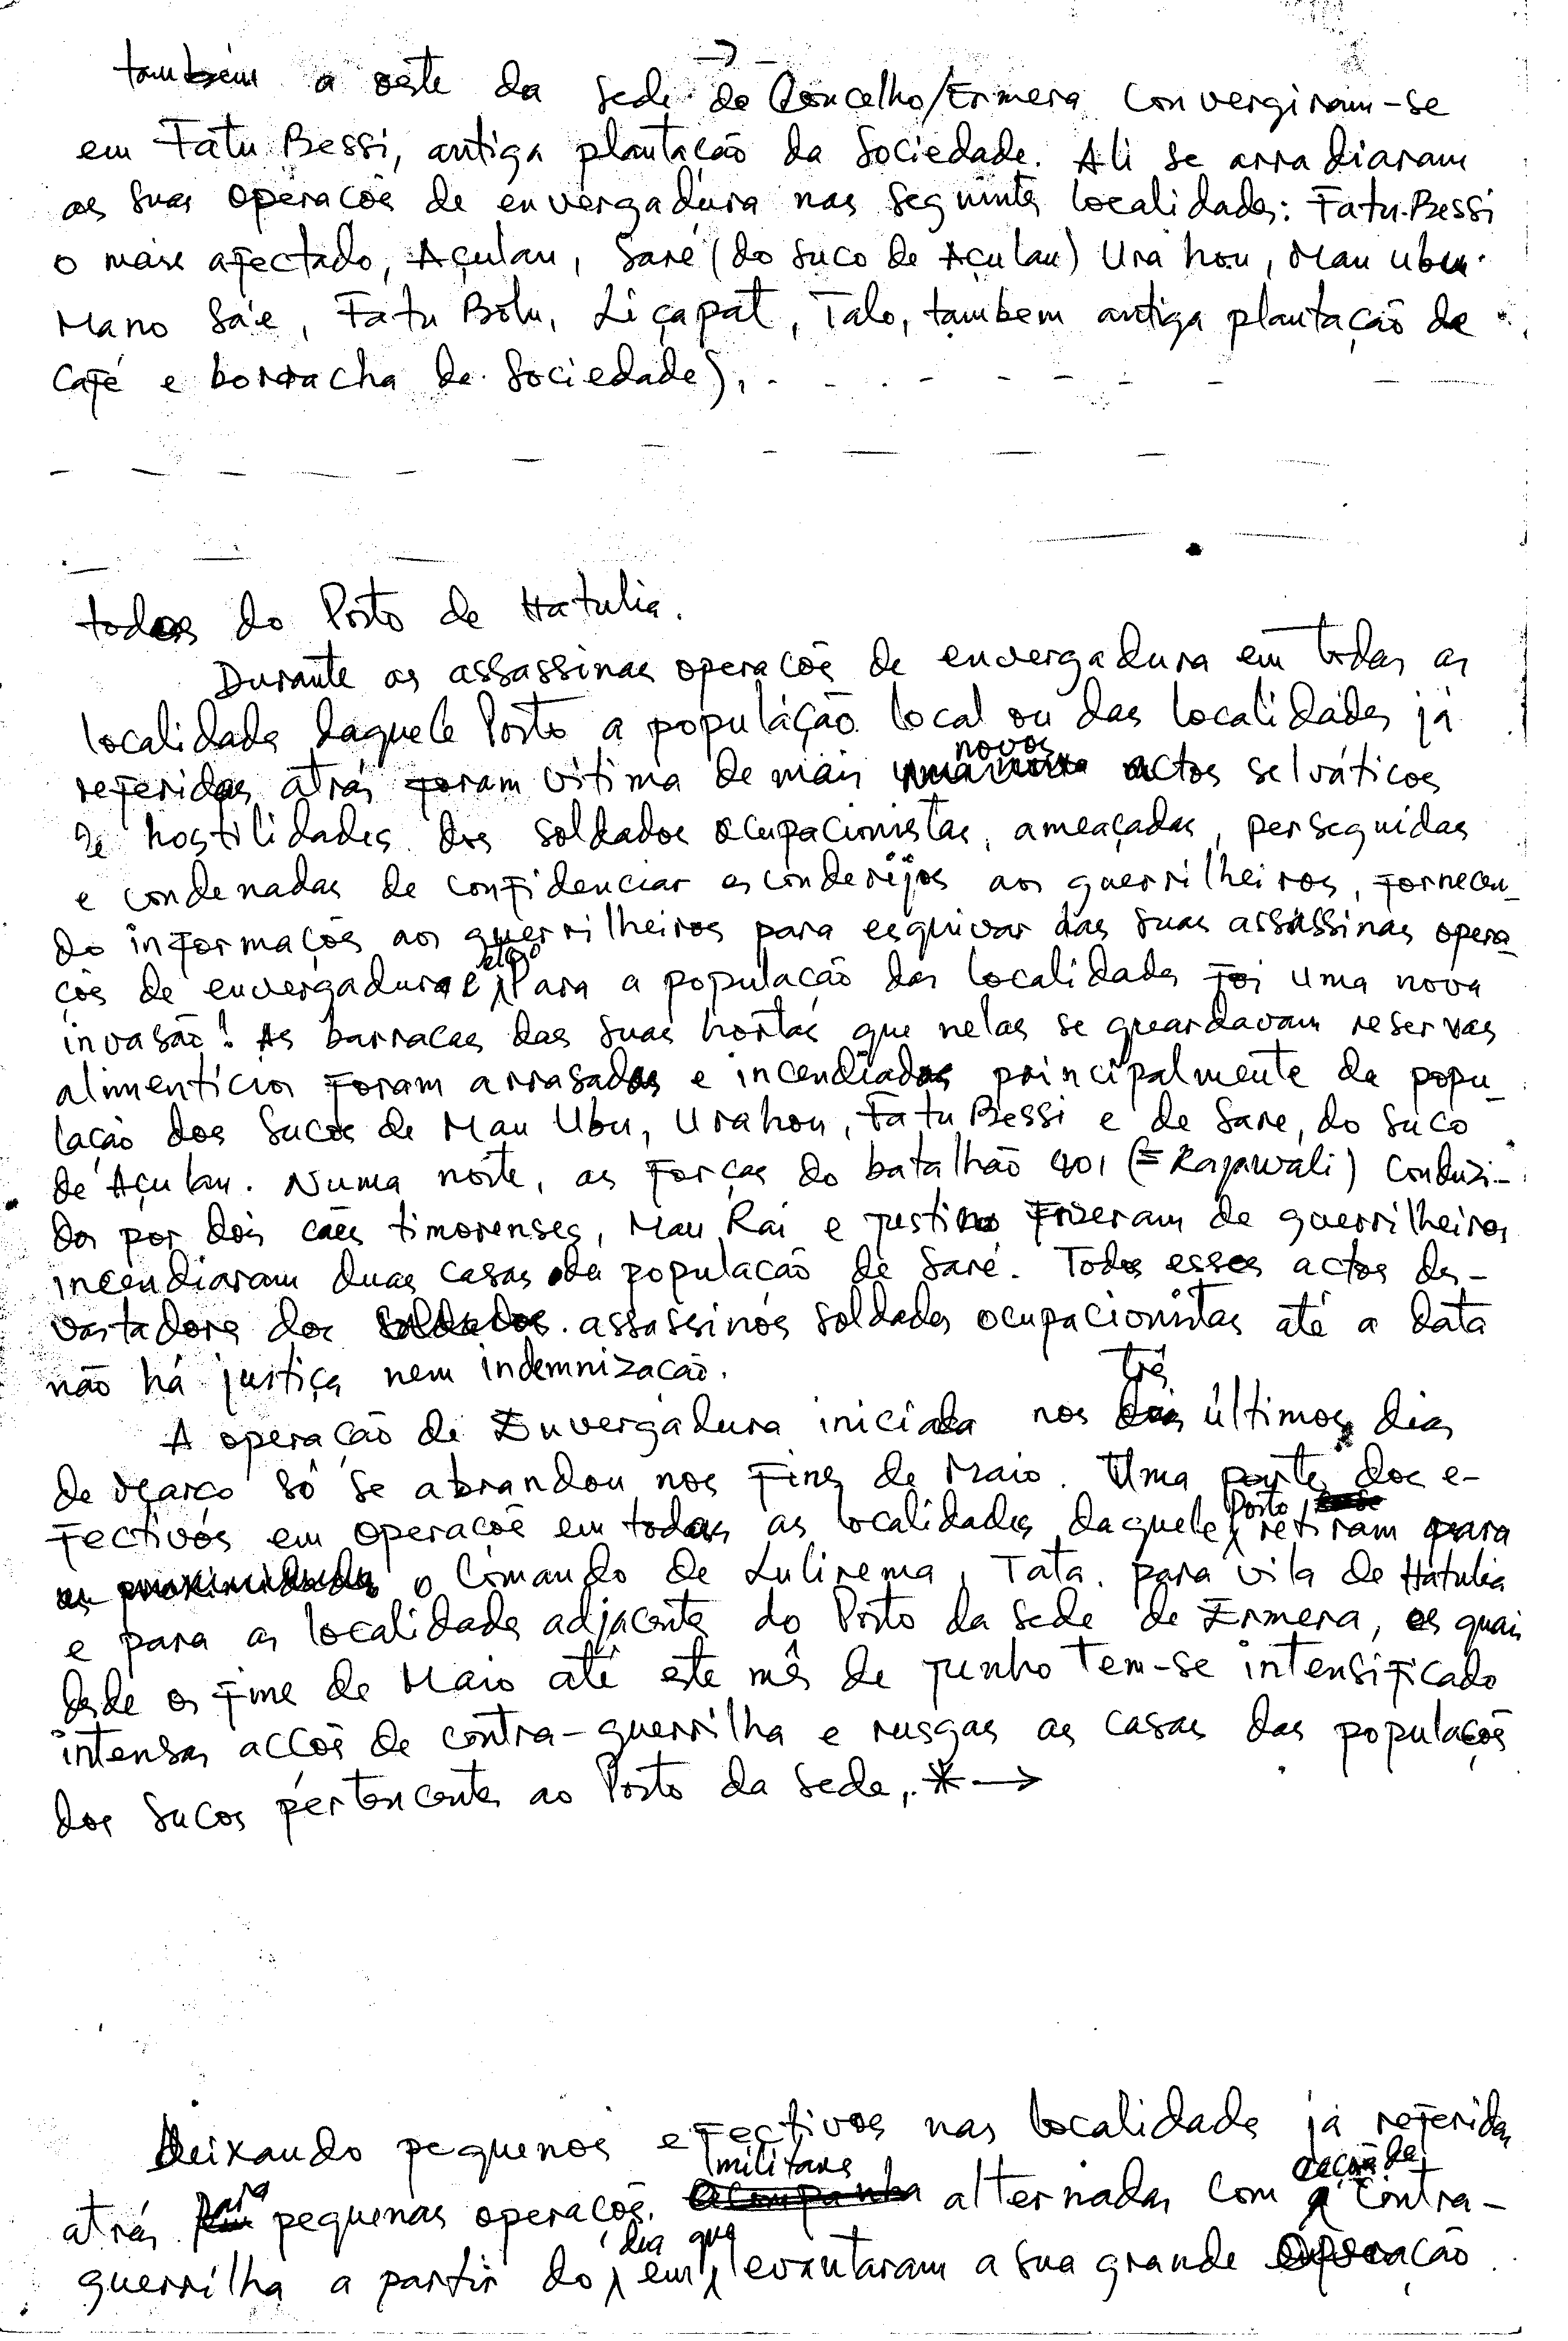 também a oeste da sede do Concelho/Ermera convergiram-se
em Fatu Bessi, antiga plantação da Sociedade. Ali se arradiaram
as suas operacões de envergadura nas seguintes localidades: Fatu-Bessi
o mais afectado, Açulau, Saré (do suco de Açulau) Urahou, Mau Ubu.
Mano Sáe, Fatu Bolu, Liçapat, Talo, também antiga plantação de
Café e borracha da Sociedade),
todos do Posto de Hatulia.
Durante as assassinas operacões de envergadura em todas as
localidades daquele Posto a população local ou das localidades já
referidas atrás foram vítima de mais novos actos selváticos
de hostilidades dos soldados ocupacionistas, ameaçadas, perseguidas
e condenadas de confidenciar esconderijos aos guerrilheiros, fornecen-
do informações aos guerrilheiros para esquivar das suas assassinas opera-
ções de envergadura e etc. Para a população das localidades foi uma nova
invasão! As barracas das suas hortas que nelas se guardavam reservas
alimentícios foram arrasadas e incendiadas principalmente da popu-
lação dos Sucos de Mau Ubu, Urahou, Fatu Bessi e de Sare, do suco
de Açulau. Numa noite, as forças do batalhão 401 (= Rajawali) conduzi-
dos por dois cães timorenses, Mau Rai e Justino fizeram de guerrilheiros
incendiaram duas casas da população de Saré. Todos esses actos des-
vastadores dos assassinos soldados ocupacionistas até a data
não há justiça nem indemnização.
A operação de Envergadura iniciada nos três últimos dias
de Março só se abrandou nos fins de Maio. Uma parte dos e-
fectivos em operacõe em todas as localidades daquele Posto retiram para
o Comando de Lulirema, Tata, para vila de Hatulia
e para as localidades adjacentes do Posto da Sede de Ermera, os quais
desde os fins de Maio até este mês de Junho tem-se intensificado
intensas accões de contra-guerrilha e rusgas as casas das populações
dos Sucos pertencentes ao Posto da Sede, * →
Deixando pequenos efectivos nas localidades já referidas
atrás para pequenas operacões militares alternadas com acção de contra-
guerrilha a partir do dia em que levantaram a sua grande Operação.